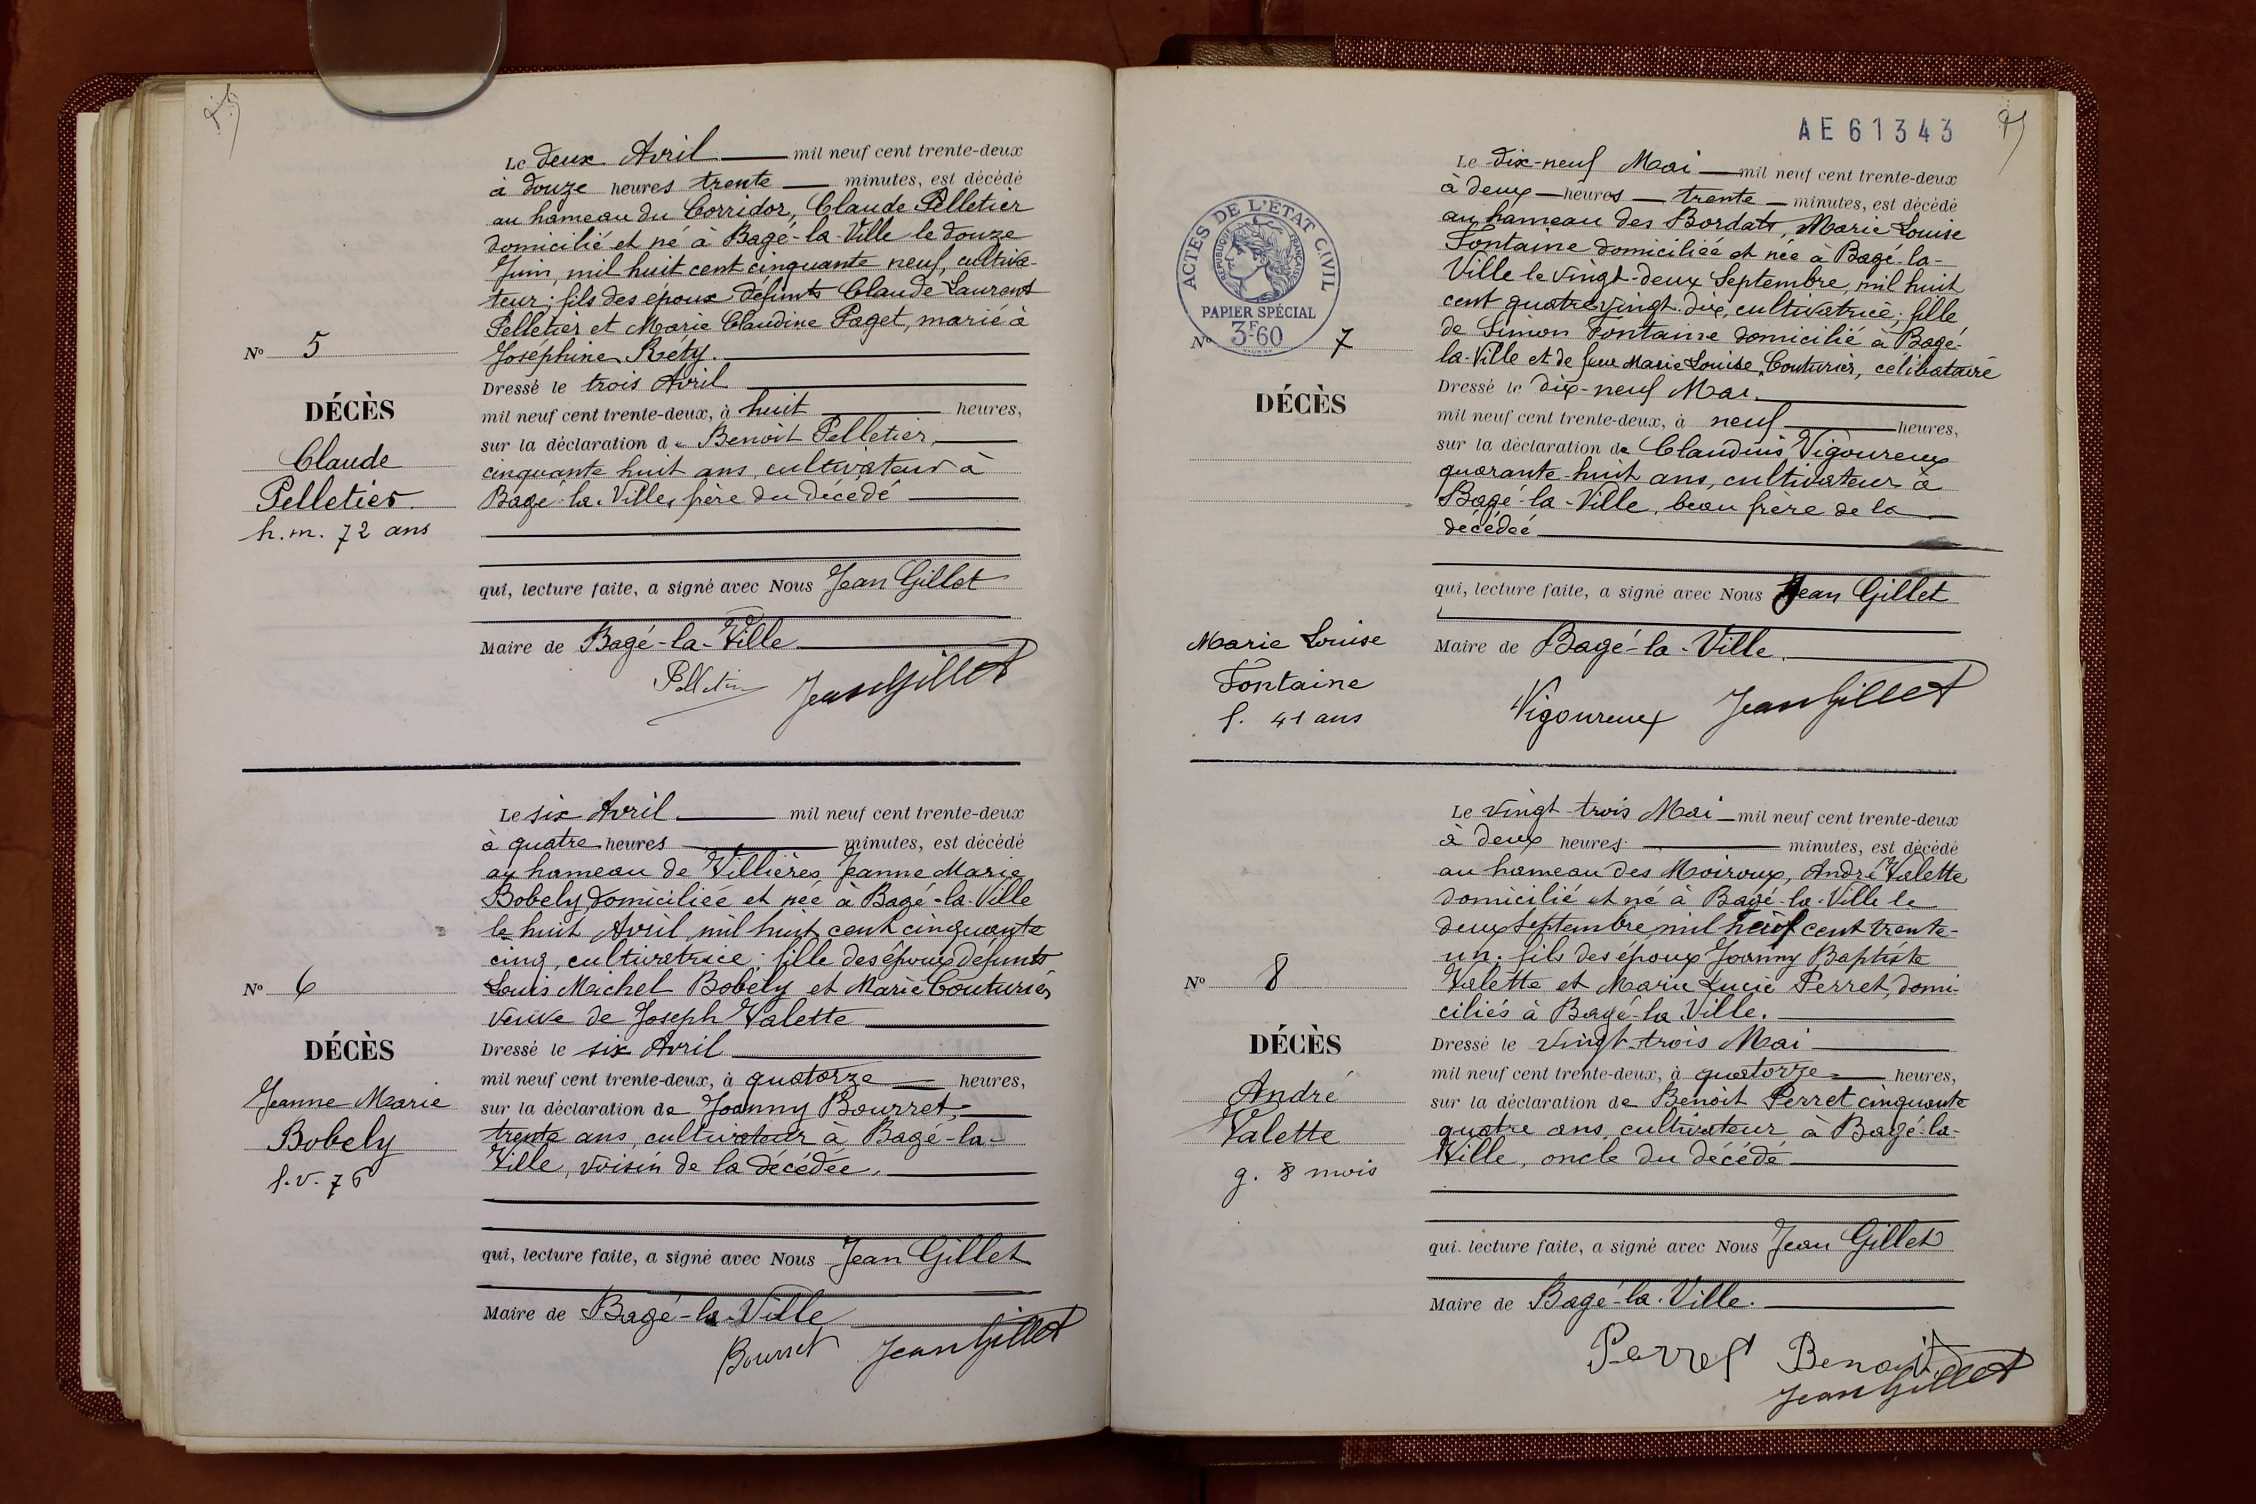 Le deux Avril mil neuf cent trente-deux
à douze heures trente minutes, est décédé
au hameau du Corridor, Claude Pelletier
domicilié et né à Bagé-la-Ville le douze
Juin, mil huit cent cinquante neuf, cultiva-
teur; fils des époux défunts Claude Laurent
Pelletier et Marie Claudine Paget, marié à
Joséphine Réty.
Nº 5
DÉCÈS
Claude
Pelletier.
h.m. 72 ans
Dressé le trois Avril
mil neuf cent trente-deux, à huit heures,
sur la déclaration de Benoit Pelletier,
cinquante huit ans, cultivateur à
Bagé-la-Ville, frère du décédé
qui, lecture faite, a signé avec Nous Jean Gillet
Maire de Bagé-la-Ville
Pelletier Jean Gillet
Le six Avril mil neuf cent trente-deux
à quatre heures minutes, est décédé
au hameau de Villières Jeanne Marie
Bobely domiciliée et née à Bagé-la-Ville
le huit Avril, mil huit cent cinquante
cinq, cultivatrice; fille des époux défunts
Louis Michel Bobely et Marie Couturier,
veuve de Joseph Valette
Nº 6
DÉCÈS
Jeanne Marie
Bobely
f.v. 76
Dressé le six Avril
mil neuf cent trente-deux, à quatorze heures,
sur la déclaration de Joanny Bourret,
trente ans, cultivateur à Bagé-la-
Ville, voisin de la décédée.
qui, lecture faite, a signé avec Nous Jean Gillet
Maire de Bagé-la-Ville
Bourret Jean Gillet
AE61343
ACTES DE L'ÉTAT CIVIL
RÉPUBLIQUE FRANÇAISE
PAPIER SPÉCIAL
3F60
Le dix-neuf Mai mil neuf cent trente-deux
à deux heures trente minutes, est décédé
au hameau des Bordats, Marie Louise
Fontaine domiciliée et née à Bagé-la-
Ville le vingt-deux Septembre, mil huit
cent quatre-vingt-dix, cultivatrice; fille
de Simon Fontaine domicilié à Bagé-
la-Ville et de feue Marie Louise Couturier, célibataire
Nº 7
DÉCÈS
Marie Louise
Fontaine
f. 41 ans
Dressé le dix-neuf Mai.
mil neuf cent trente-deux, à neuf heures,
sur la déclaration de Claudius Vigoureux
quarante-huit ans, cultivateur à
Bagé-la-Ville, beau frère de la
décédée
qui, lecture faite, a signé avec Nous Jean Gillet
Maire de Bagé-la-Ville.
Vigoureux Jean Gillet
Le vingt-trois Mai mil neuf cent trente-deux
à deux heures minutes, est décédé
au hameau des Moiroux, André Valette
domicilié et né à Bagé-la-Ville le
deux Septembre, mil neuf cent trente-
un; fils des époux Joanny Baptiste
Valette et Marie Lucie Perret, domi-
ciliés à Bagé-la-Ville.
Nº 8
DÉCÈS
André
Valette
g. 8 mois
Dressé le vingt-trois Mai
mil neuf cent trente-deux, à quatorze heures,
sur la déclaration de Benoit Perret cinquante
quatre ans, cultivateur à Bagé-la-
Ville, oncle du décédé
qui, lecture faite, a signé avec Nous Jean Gillet
Maire de Bagé-la-Ville.
Perret Benoit
Jean Gillet